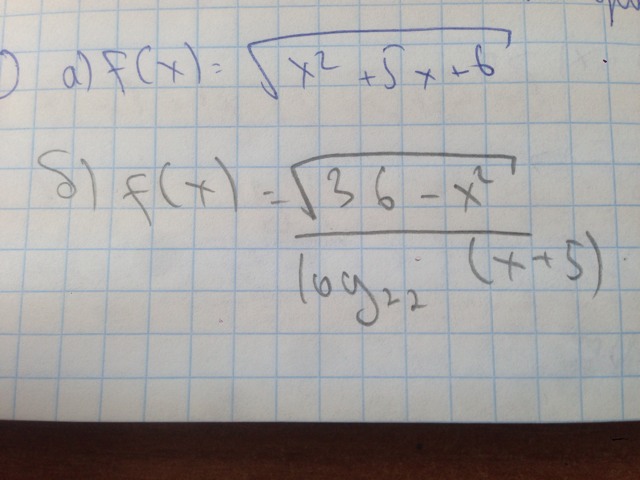 ) а) f(x)= √x² +5x+6
б) f(x) = √36 - x²
log₂₂ (x+5)